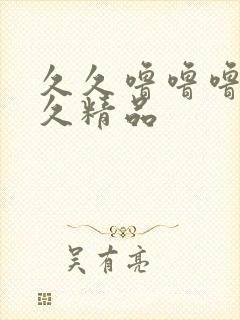 久久噜噜噜
久精品
吴有亮